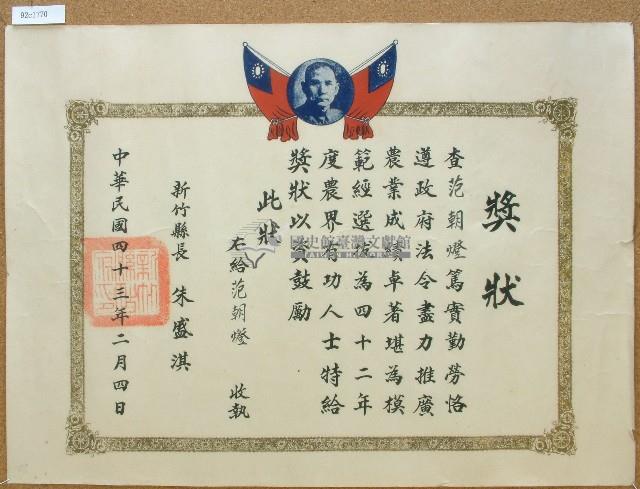 92c1770
獎狀
查范朝燈篤實勤勞恪
遵政府法令盡力推廣
農業成績卓著堪為模
範經選拔為四十二年
度農界有功人士特給
獎狀以資鼓勵
此狀
右給范朝燈 收執
新竹縣長 朱盛淇
中華民國四十三年二月四日
國史館臺灣文獻館